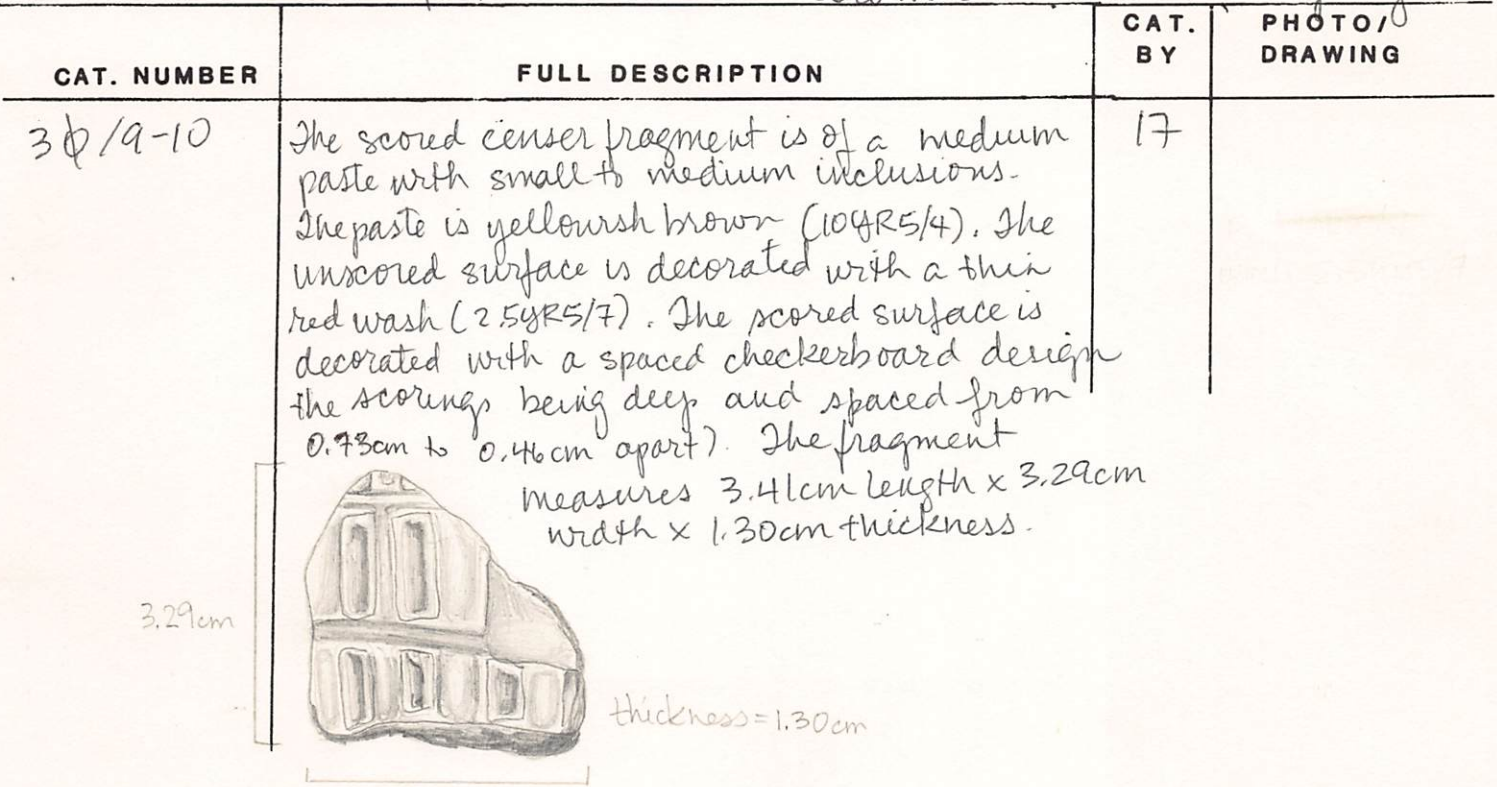 CAT. NUMBER
FULL DESCRIPTION
CAT. BY
PHOTO/ DRAWING
30/9-10
17
The scored censer fragment is of a medium
paste with small to medium inclusions.
The paste is yellowish brown (10YR5/4). The
unscored surface is decorated with a thin
red wash (2.5YR5/7). The scored surface is
decorated with a spaced checkerboard design
the scorings being deep and spaced from
0.73cm to 0.46cm apart). The fragment
measures 3.41cm length x 3.29cm
width x 1.30cm thickness.
3.29cm
thickness=1.30cm